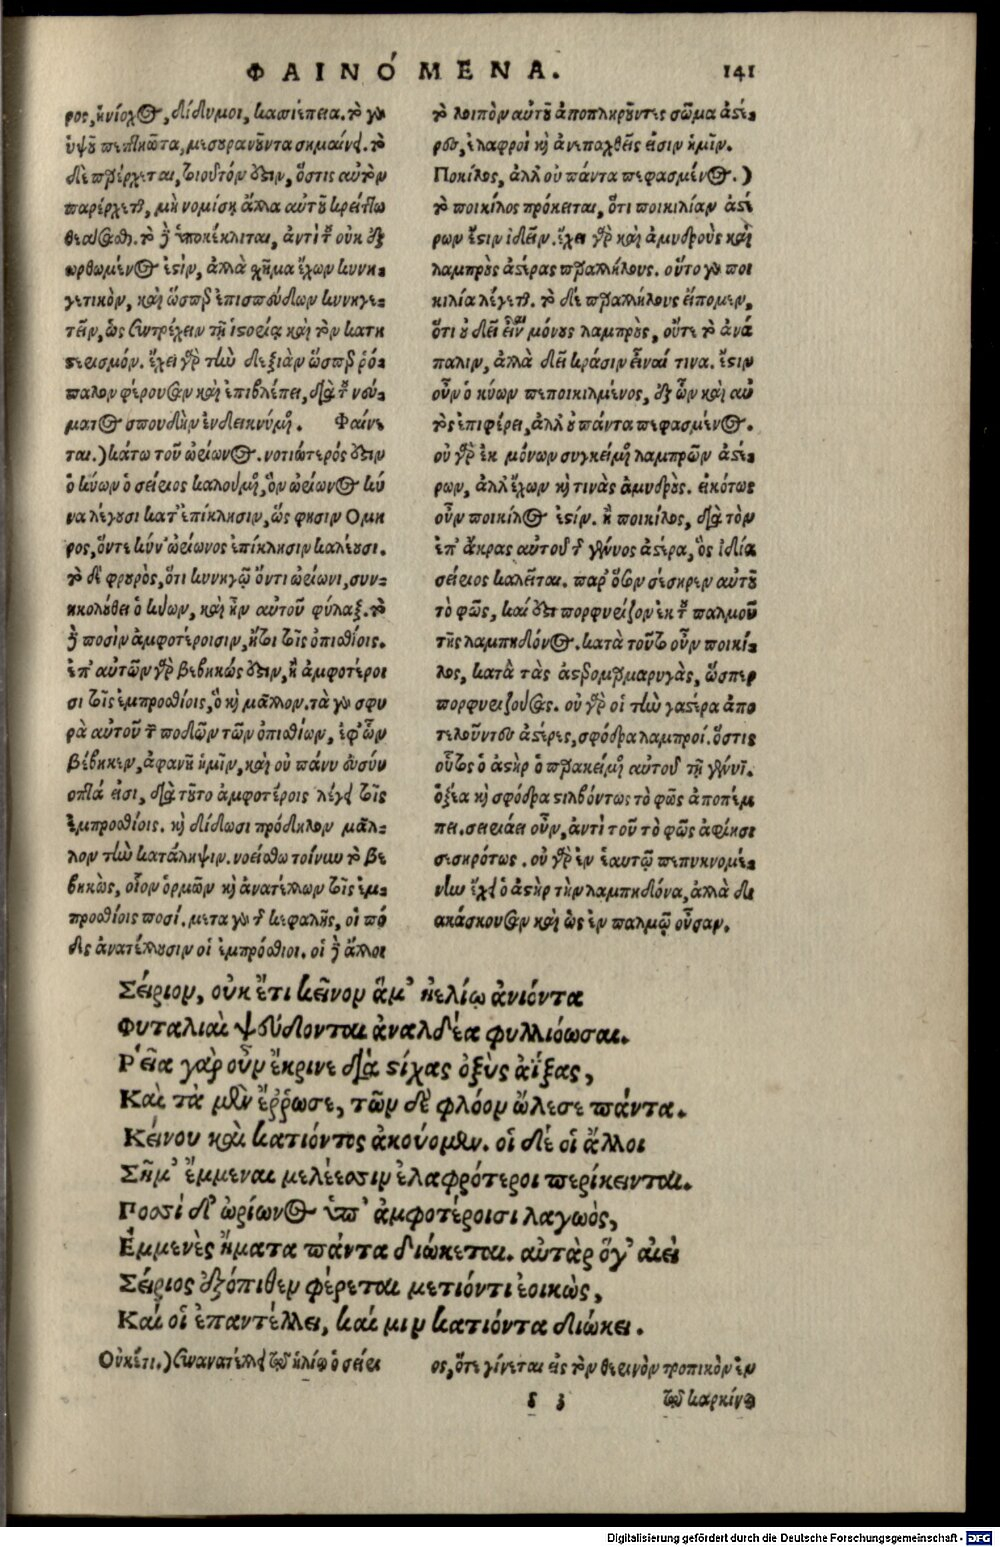 ΦΑΙΝΌΜΕΝΑ. 141
ρος, ἡνίοχος, δίδυμοι, κασσιέπεια. τὸ γὰρ
ὑψοῦ πεπτηῶτα, μεσουρανοῦντα σημαίνει. τὸ
δὲ παρέρχεται, τοιοῦτόν ἐστιν, ὅστις αὐτὸν
παρέρχεται, μὴ νομίσῃ ἄλλα αὐτοῦ κρείττω
θεάσασθαι. τὸ δὲ ὑποκέκλιται, ἀντὶ τοῦ οὐκ ἐξ
ωρθωμένος ἐστὶν, ἀλλὰ σχῆμα ἔχων κυνη-
γετικὸν, καὶ ὥσπερ ἐπισπεύδων κυνηγε-
τεῖν, ὡς συντρέχειν τῇ ἱστορίᾳ καὶ τὸν κατη
στερισμόν. ἔχει γὰρ τὴν δεξιὰν ὥσπερ ῥό-
παλον φέρουσαν καὶ ἐπιβλέπει, διὰ τοῦ νεύ-
ματος σπουδὴν ἐνδεικνύμενος. Φαίνε
ται.) κάτω τοῦ ὠρίωνος. νοτιώτερός ἐστιν
ὁ κύων ὁ σείριος καλούμενος, ὃν ὠρίωνος κύ
να λέγουσι κατ' ἐπίκλησιν, ὥς φησιν Ὅμη
ρος, ὅντε κύν' ὠρίωνος ἐπίκλησιν καλέουσι.
τὸ δὲ φρουρὸς, ὅτι κυνηγῷ ὄντι ὠρίωνι, συν-
ηκολούθει ὁ κύων, καὶ ἦν αὐτοῦ φύλαξ. τὸ
δὲ ποσὶν ἀμφοτέροισιν, ἤτοι τοῖς ὀπισθίοις.
ἐπ' αὐτῶν γὰρ βεβηκώς ἐστιν, ἢ ἀμφοτέροι
σι τοῖς ἐμπροσθίοις, ὃ καὶ μᾶλλον. τὰ γὰρ σφυ
ρὰ αὐτοῦ τοῦ ποδῶν τῶν ὀπισθίων, ἐφ' ὧν
βέβηκεν, ἀφανῆ ἡμῖν, καὶ οὐ πάνυ εὐσύν
οπτά εἰσι, διὰ τοῦτο ἀμφοτέροις λέγει τοῖς
ἐμπροσθίοις. καὶ δίδωσι πρόδηλον μᾶλ-
λον τὴν κατάληψιν. νοείσθω τοίνυν τὸ βε
βηκὼς, οἷον ὁρμῶν καὶ ἀνατέλλων τοῖς ἐμ-
προσθίοις ποσί. μετὰ γὰρ τῆς κεφαλῆς, οἱ πό
δες ἀνατέλλουσιν οἱ ἐμπρόσθιοι. οἱ δὲ ἄλλοι
τὸ λοιπὸν αὐτοῦ ἀποπληροῦντες σῶμα ἀστέ-
ρες, ἐλαφροὶ καὶ ἀνεπαχθεῖς εἰσιν ἡμῖν.
Ποικίλος, ἀλλ' οὐ πάντα πεφασμένος.)
τὸ ποικίλος πρόκειται, ὅτι ποικιλίαν ἀστέ
ρων ἔστιν ἰδεῖν. ἔχει γὰρ καὶ ἀμυδροὺς καὶ
λαμπροὺς ἀστέρας παραλλήλους. οὕτο γὰρ ποι
κιλία λέγεται. τὸ δὲ παραλλήλους εἴπομεν,
ὅτι οὐ δεῖ εἶναι μόνους λαμπροὺς, οὔτε τὸ ἀνά
παλιν, ἀλλὰ δεῖ κράσιν εἶναί τινα. ἔστιν
οὖν ὁ κύων πεποικιλμένος, ἐξ ὧν καὶ αὐ
τὸς ἐπιφέρει, ἀλλ' οὐ πάντα πεφασμένος.
οὐ γὰρ ἐκ μόνων συγκείμενος λαμπρῶν ἀστέ-
ρων, ἀλλ' ἔχων καὶ τινὰς ἀμυδρούς. εἰκότως
οὖν ποικίλος ἐστίν. ἢ ποικίλος, διὰ τὸν
ἐπ' ἄκρας αὐτοῦ τῆς γένυος ἀστέρα, ὃς ἰδίᾳ
σείριος καλεῖται. παρ' ὅσον σέσηρεν αὐτοῦ
τὸ φῶς, καί ἐστι πορφυρίζον ἐκ τοῦ παλμοῦ
τῆς λαμπηδόνος. κατὰ τοῦτο οὖν ποικί-
λος, κατὰ τὰς ἀστρομαρμαρυγὰς, ὥσπερ
πορφυριζούσας. οὐ γὰρ οἱ τὴν γαστέρα ἀπο
τελοῦντες ἀστέρες, σφόδρα λαμπροί. ὅστις
οὗτος ὁ ἀστὴρ ὁ παρακείμενος αὐτοῦ τῇ γένυϊ.
ὀξέα καὶ σφόδρα στιλβόντως τὸ φῶς ἀποπέμ
πει. σειριάει οὖν, ἀντὶ τοῦ τὸ φῶς ἀφίησι
σεσηρότως. οὐ γὰρ ἐν ἑαυτῷ πεπυκνομέ-
νην ἔχει ὁ ἀστὴρ τὴν λαμπηδόνα, ἀλλὰ δι
ακάσκουσαν καὶ ὡς ἐν παλμῷ οὖσαν.
Σείριον, οὐκ ἔτι κεῖνον ἅμ' ἠελίῳ ἀνιόντα
Φυταλιαὶ ψεύδονται ἀναλδέα φυλλιόωσαι.
Ῥεῖα γὰρ οὖν ἔκρινε διὰ στίχας ὀξὺς ἀΐξας,
Καὶ τὰ μὲν ἔῤῥωσε, τῶν δὲ φλόον ὤλεσε πάντα.
Κείνου καὶ κατιόντος ἀκούομεν. οἱ δέ οἱ ἄλλοι
Σῆμ' ἔμμεναι μελέεσσιν ἐλαφρότεροι περίκεινται.
Ποσσὶ δ' ὠρίωνος ὑπ' ἀμφοτέροισι λαγωὸς,
Ἐμμενὲς ἤματα πάντα διώκεται. αὐτὰρ ὅγ' αἰεὶ
Σείριος ἐξόπιθεν φέρεται μετιόντι ἐοικὼς,
Καί οἱ ἐπαντέλλει, καί μιν κατιόντα διώκει.
Οὐκέτι.) συνανατέλλει τῷ ἡλίῳ ὁ σείρι
ος, ὅτε γίνεται εἰς τὸν θερινὸν τροπικὸν ἐν
s 3 τῷ καρκίνῳ
Digitalisierung gefördert durch die Deutsche Forschungsgemeinschaft - DFG